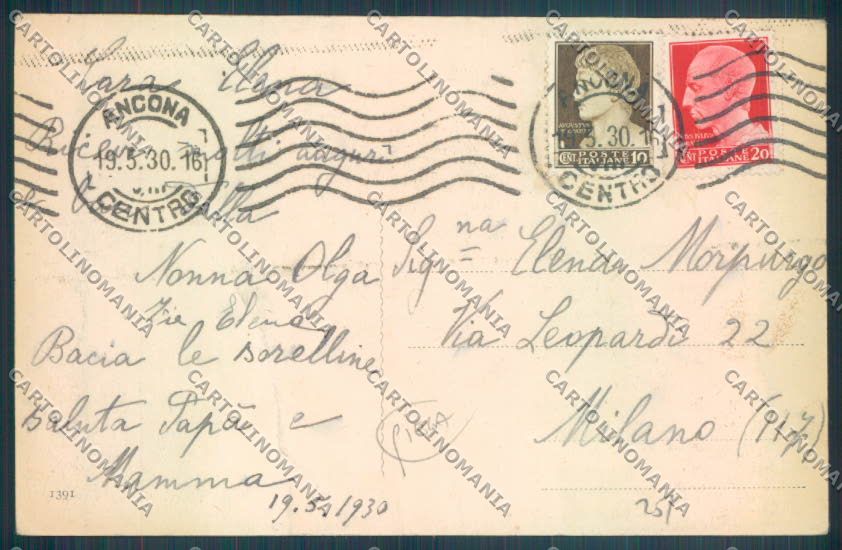 Cara Elena
Ricevi molti auguri
Nonna Olga
Zie Elena
Bacia le sorelline
Saluta Papà e
Mamma
19.5.1930
1391
ANCONA
19.5.30.16
CENTRO
ANCONA
5.30.1
CENTRO
POSTE
ITALIANE
CENT 10
POSTE
ITALIANE
CENT 20
Sig.na Elena Morpurgo
Via Leopardi 22
Milano (117)
CARTOLINOMANIA